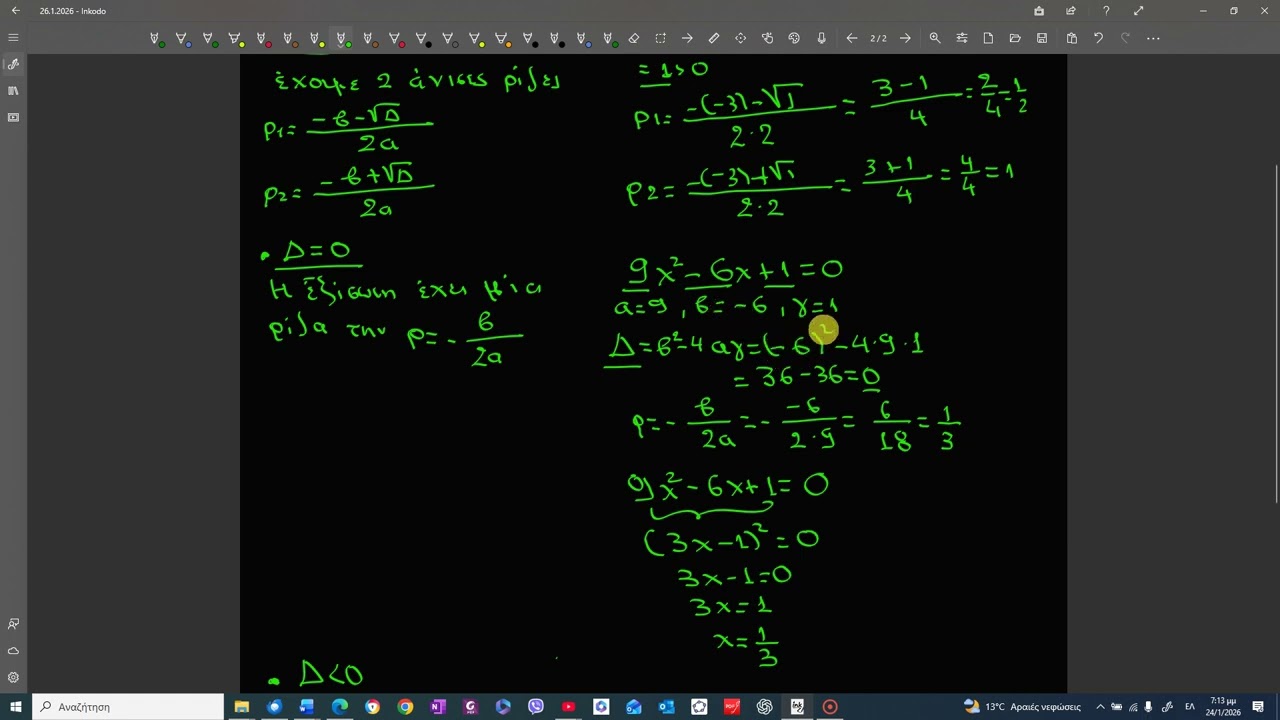 26.1.2026 - Inkodo
2/2
έχουμε 2 άνισες ρίζες
ρ1= (-β-√Δ)/2α
ρ2= (-β+√Δ)/2α
• Δ=0
Η εξίσωση έχει μία
ρίζα την ρ= - β/2α
• Δ<0
= 1>0
ρ1= (-(-3)-√1)/(2·2) = (3-1)/4 = 2/4 = 1/2
ρ2= (-(-3)+√1)/(2·2) = (3+1)/4 = 4/4 = 1
9x²-6x+1=0
α=9, β=-6, γ=1
Δ=β²-4αγ=(-6)²-4·9·1
= 36-36=0
ρ=- β/2α =- -6/(2·9) = 6/18 = 1/3
9x²-6x+1=0
(3x-1)²=0
3x-1=0
3x=1
x= 1/3
Αναζήτηση
13°C Αραιές νεφώσεις
ENG
7:13 μμ
24/1/2026